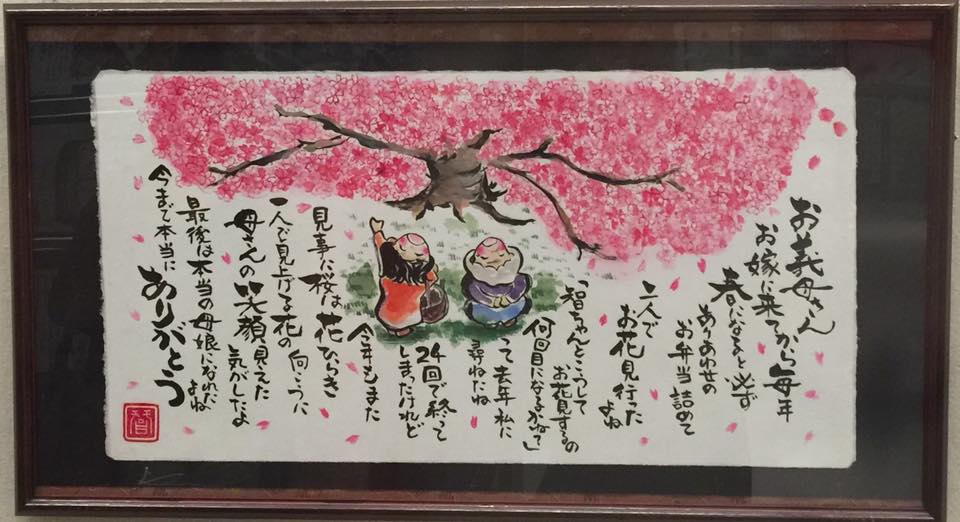 お義母さん
お嫁に来てから毎年
春になると必ず
ありあわせの
お弁当詰めて
二人で
お花見行った
よね
「智ちゃんとこうして
お花見するの
何回目になるかねぇ」
って去年私に
尋ねたね
24回で終って
しまったけれど
今年もまた
見事に桜は花ひらき
一人で見上げる花の
向こうに
母さんの笑顔見えた
気がしたよ
最後は本当の母娘になれた
よね
今まで本当に
ありがとう